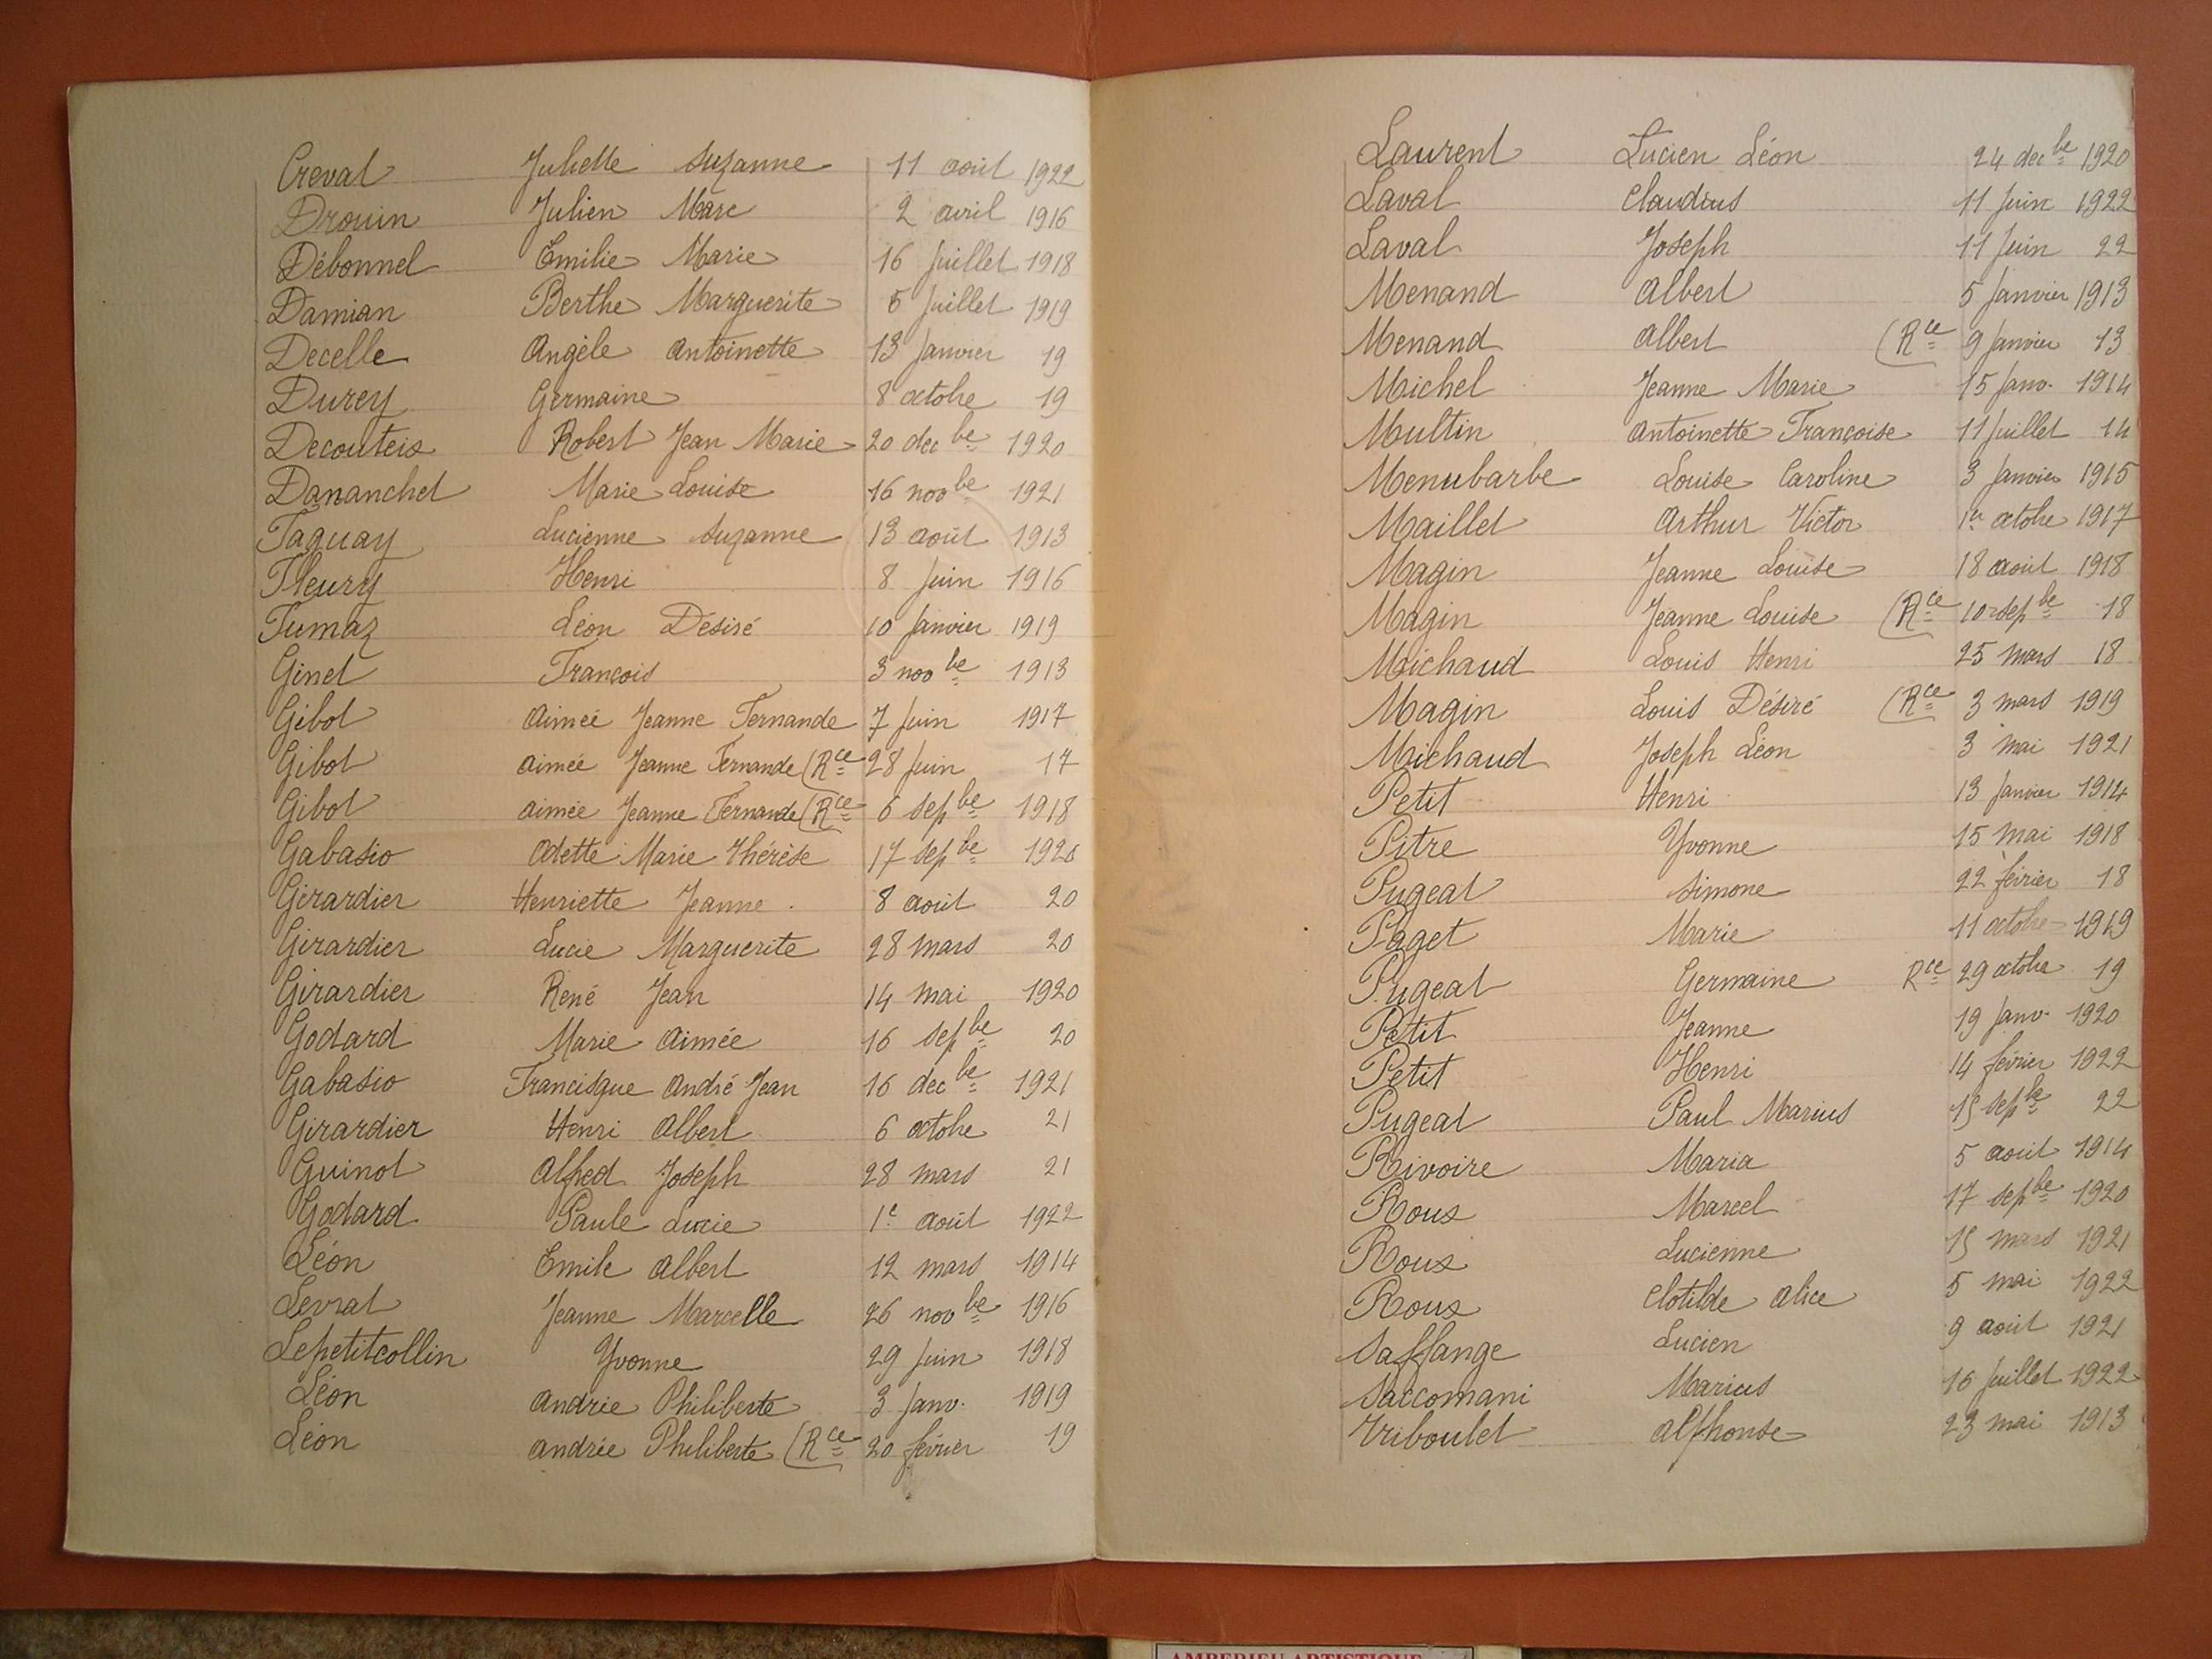 Creval Juliette Suzanne 11 août 1922
Drouin Julien Marc 2 avril 1916
Débonnel Emilie Marie 16 Juillet 1918
Damian Berthe Marguerite 5 Juillet 1919
Decelle Angèle Antoinette 13 Janvier 19
Durey Germaine 8 octobre 19
Decouteix Robert Jean Marie 20 decbe 1920
Dananchet Marie Louise 16 novbe 1921
Faguay Lucienne Suzanne 13 août 1913
Fleury Henri 8 Juin 1916
Fumaz Léon Désiré 10 Janvier 1919
Ginet François 3 novbe 1913
Gibot Aimée Jeanne Fernande 7 Juin 1917
Gibot Aimée Jeanne Fernande (Rce 28 Juin 17
Gibot Aimée Jeanne Fernande (Rce 6 sepbe 1918
Gabasio Odette Marie Thérèse 17 sepbe 1920
Girardier Henriette Jeanne 8 août 20
Girardier Lucie Marguerite 28 mars 20
Girardier René Jean 14 mai 1920
Godard Marie Aimée 16 sepbe 20
Gabasio Francisque André Jean 16 decbe 1921
Girardier Henri Albert 6 octobre 21
Guinot Alfred Joseph 28 mars 21
Godard Paule Lucie 1e août 1922
Léon Emile Albert 12 mars 1914
Levrat Jeanne Marcelle 26 novbe 1916
Lepetitcollin Yvonne 29 Juin 1918
Léon Andrée Philiberte 3 Janv. 1919
Léon Andrée Philiberte (Rce 20 février 19
Laurent Lucien Léon 24 decbe 1920
Laval Claudius 11 Juin 1922
Laval Joseph 11 Juin 22
Menand Albert 5 Janvier 1913
Menand Albert (Rce 9 Janvier 13
Michel Jeanne Marie 15 Janv. 1914
Multin Antoinette Françoise 11 Juillet 14
Menubarbe Louise Caroline 3 Janvier 1915
Maillet Arthur Victor 1er octobre 1917
Magin Jeanne Louise 18 août 1918
Magin Jeanne Louise (Rce 10 sepbe 18
Michaud Louis Henri 25 mars 18
Magin Louis Désiré (Rce 3 mars 1919
Michaud Joseph Léon 3 mai 1921
Petit Henri 13 Janvier 1914
Pitre Yvonne 15 mai 1918
Pugeat Simone 22 février 18
Paget Marie 11 octobre 1919
Pugeat Germaine Rce 29 octobre 19
Petit Jeanne 19 Janv. 1920
Petit Henri 14 février 1922
Pugeat Paul Marius 15 sepbe 22
Rivoire Maria 5 août 1914
Roux Marcel 17 sepbe 1920
Roux Lucienne 15 mars 1921
Roux Clotilde Alice 5 mai 1922
Saffange Lucien 9 août 1921
Saccomani Marius 16 Juillet 1922
Triboulet Alphonse 23 mai 1913
AMBERIEU ARTISTIQUE